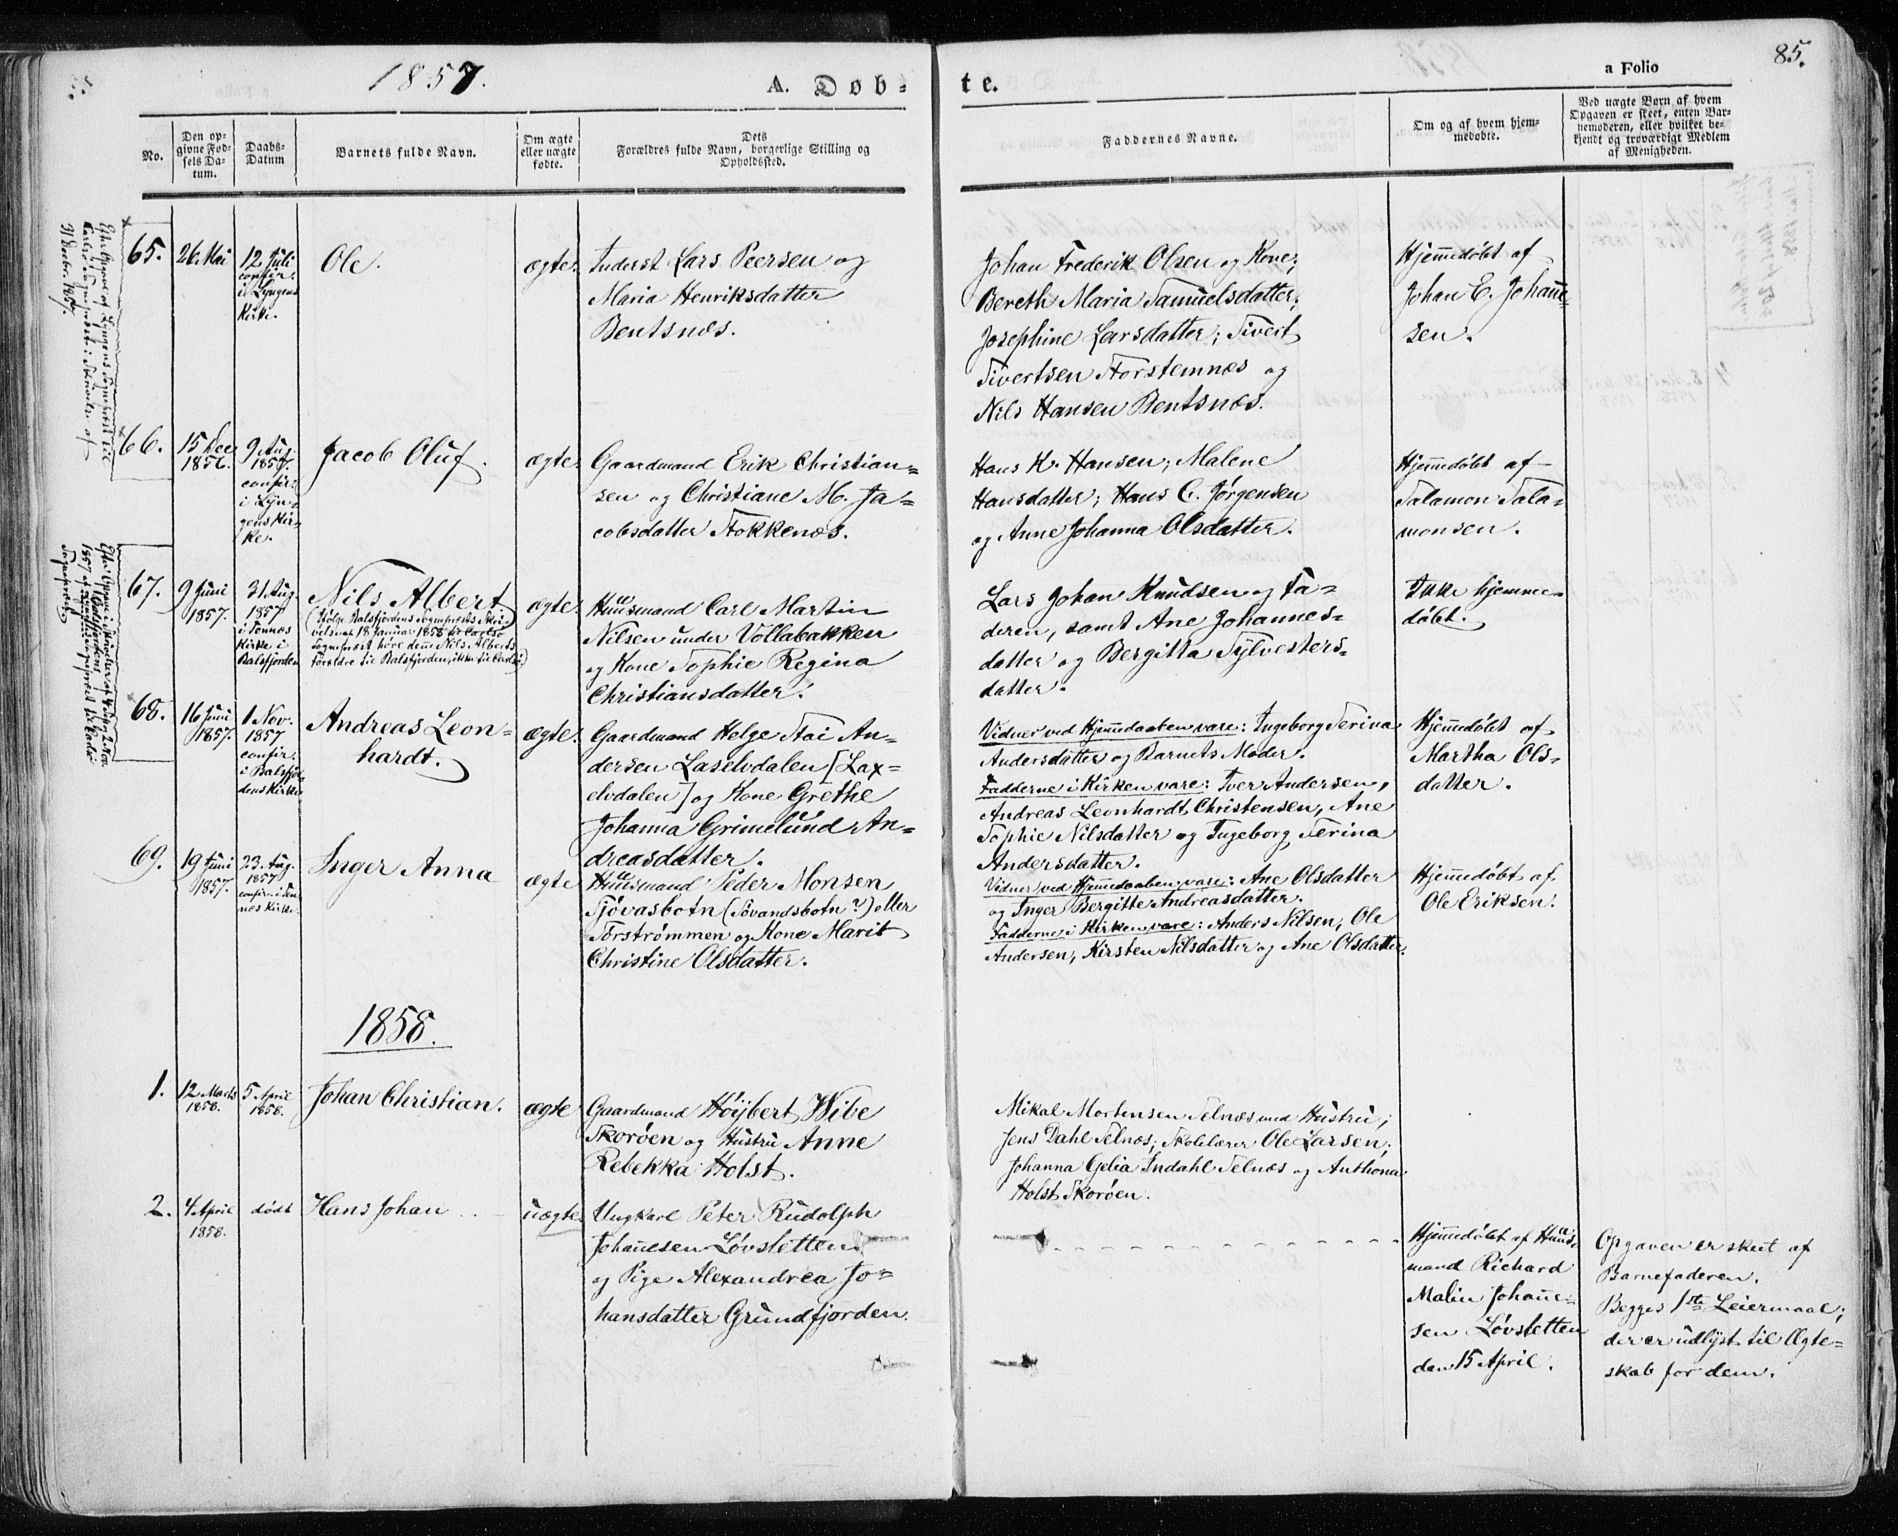 1857.
A. Døb-
te.
a Folio
85.
No.
Den op-
givne Fød-
sels Da-
tum.
Daabs-
Datum
Barnets fulde Navn.
Om ægte
eller uægte
fødte.
Dets
Forældres fulde Navn, borgerlige Stilling og
Opholdssted.
Faddernes Navne.
Om og af hvem hjem-
medøbte.
Ved uægte Børn af hvem
Opgaven er skeet, enten Bar-
nemoderen, eller hvilket be-
kjendt og troværdigt Medlem
af Menigheden.
Efter Opgave af Lyngens Sognepræst til
Carlsø Sognepræst i Skrivelse af
31 Decbr. 1857.
65.
26. Mai
12 Juli
confir.
i Lyngens
Kirke.
Ole.
ægte.
Inderst Lars Peersen og
Maria Henriksdatter
Bentsnæs.
Johan Frederik Olsen og Kone;
Bereth Maria Samuelsdatter;
Josephine Larsdatter; Sivert
Sivertsen Storstennæs og
Nils Hansen Bentsnæs.
Hjemmedøbt af
Johan E. Johanne-
sen.
66.
15 Dec
1856.
9 Aug.
1857.
confir.
i Lyn-
gens Kir-
ke.
Jacob Oluf.
ægte.
Gaardmand Erik Christian-
sen og Christiane M. Ja-
cobsdatter Stokkenæs.
Hans K. Hansen; Malene
Hansdatter; Hans C. Jørgensen
og Anne Johanna Olsdatter.
Hjemmedøbt af
Salamon Sala-
monsen.
Efter Opgave i Skrivelse af 4 Sept og 2 Nov.
1857 af Balsfjordens Sognepræst til Carlsø
Sognepræst.
67.
9 Juni
1857.
31 Aug.
1857
i Tennæs
Kirke i
Balsfjorden
Nils Albert
(Ifølge Balsfjordens Sognepræsts Skri-
velse af 18 Januar 1858 til Carlsø
Sognepræst høre dem Nils Alberts
Forældre til Balsfjorden, ikke til Carlsø)
ægte.
Huusmand Carl Martin
Nilsen under Vollabakken
og Kone Sophie Regina
Christiansdatter.
Lars Johan Knudsen og Fa-
deren, samt Ane Johannes-
datter og Bergitta Sylvesters-
datter.
Ikke hjemme-
døbt.
68.
16 Juni
1857.
1 Nov.
1857
confir.
i Balsfjor-
dens Kirke
Andreas Leon-
hardt.
ægte.
Gaardmand Helge Stai An-
dersen Laselvdalen [Lax-
elvdalen] og Kone Grethe
Johanna Grimelund An-
dreasdatter.
Vidner ved Hjemmedaaben vare: Ingeborg Serina
Andersdatter og Barnets Moder.
Fadderne i Kirken vare: Iver Andersen,
Andreas Leonhardt Christensen, Ane
Sophie Nilsdatter og Ingeborg Serina
Andersdatter.
Hjemmedøbt af
Martha Ols-
datter.
69.
19 Juni
1857.
23. Aug.
1857
confir. i Ten-
næs Kirke.
Inger Anna
ægte
Huusmand Peder Monsen
Sjövasbotn (Søvandsbotn?) eller
Storstrømmen og Kone Marit
Christine Olsdatter.
Vidner ved Hjemmedaaben vare: Ane Olsdatter
og Inger Bergitte Andreasdatter.
Fadderne i Kirken vare: Anders Nilsen, Ole
Andersen, Kirsten Nilsdatter og Ane Olsdatter.
Hjemmedøbt af
Ole Eriksen.
1858.
1.
12 Marts
1858.
5 April
1858.
Johan Christian.
ægte
Gaardmand Höijbert Wibe
Skorøen og Hustru Anne
Rebekka Holst.
Mikal Mortensen Selnæs med Hustru;
Jens Dahl Selnæs; Skolelærer Ole Larsen;
Johanna Gelia Indahl Selnæs og Anthona
Holst Skorøen.
2.
4. April
1858.
dødt
Hans Johan
uægte.
Ungkarl Peter Rudolph
Johannesen Løvsletten
og Pige Alexandrea Jo-
hansdatter Grundfjorden.
Hjemmedøbt af Huus-
mand Richard
Malin Johanne-
sen Løvsletten
den 15 April.
Opgaven er skeet af
Barnefaderen.
Begges 1ste Leiermaal;
der er udlyst til Ægte-
skab for dem.